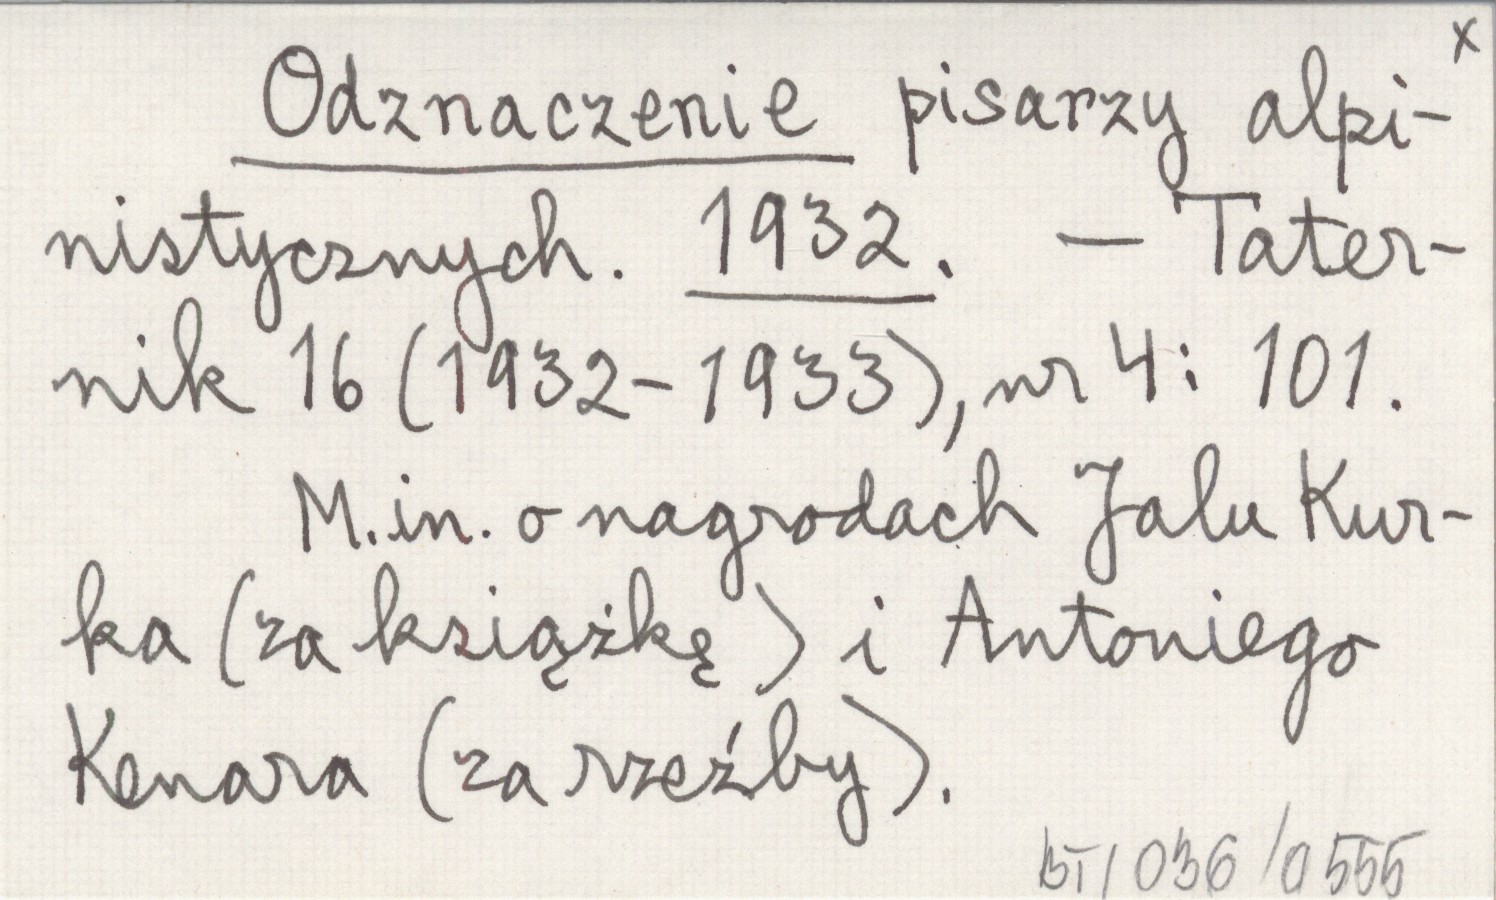 x
Odznaczenie pisarzy alpi-
nistycznych. 1932. — Tater-
nik 16 (1932-1933), nr 4: 101.
M.in. o nagrodach Jalu Kur-
ka (za książkę) i Antoniego
Kenara (za rzeźby).
BT/036/0555